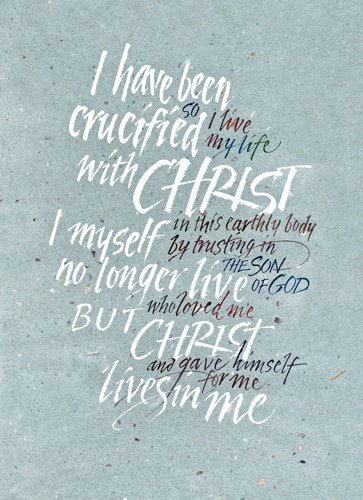 I have been
crucified
with CHRIST
I myself
no longer live
BUT CHRIST
lives in me
so I live
my life
in this earthly body
by trusting in
THE SON
OF GOD
who loved me
and gave himself
for me